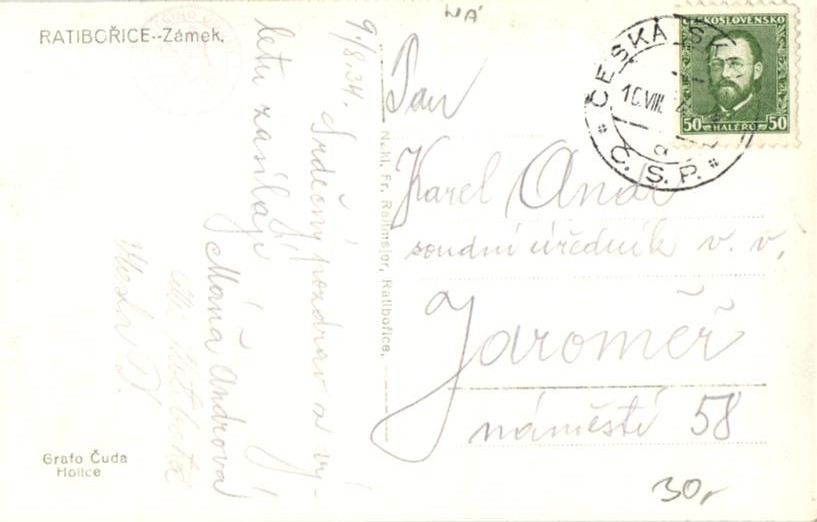 RATIBOŘICE--Zámek.
9./8.34.
Srdečný pozdrav z vý-
letu zasílají
Máňa Andrová
Grafo Čuda
Holice
Nakl. Fr. Raitmajer, Ratibořice.
NÁ
ČESKÁ SK
10.VIII.
Č.S.P.
ČESKOSLOVENSKO
50 HALÉŘŮ 50
Pan
Karel Andr
soudní úředník v. v.
Jaroměř
náměstí 58
30,